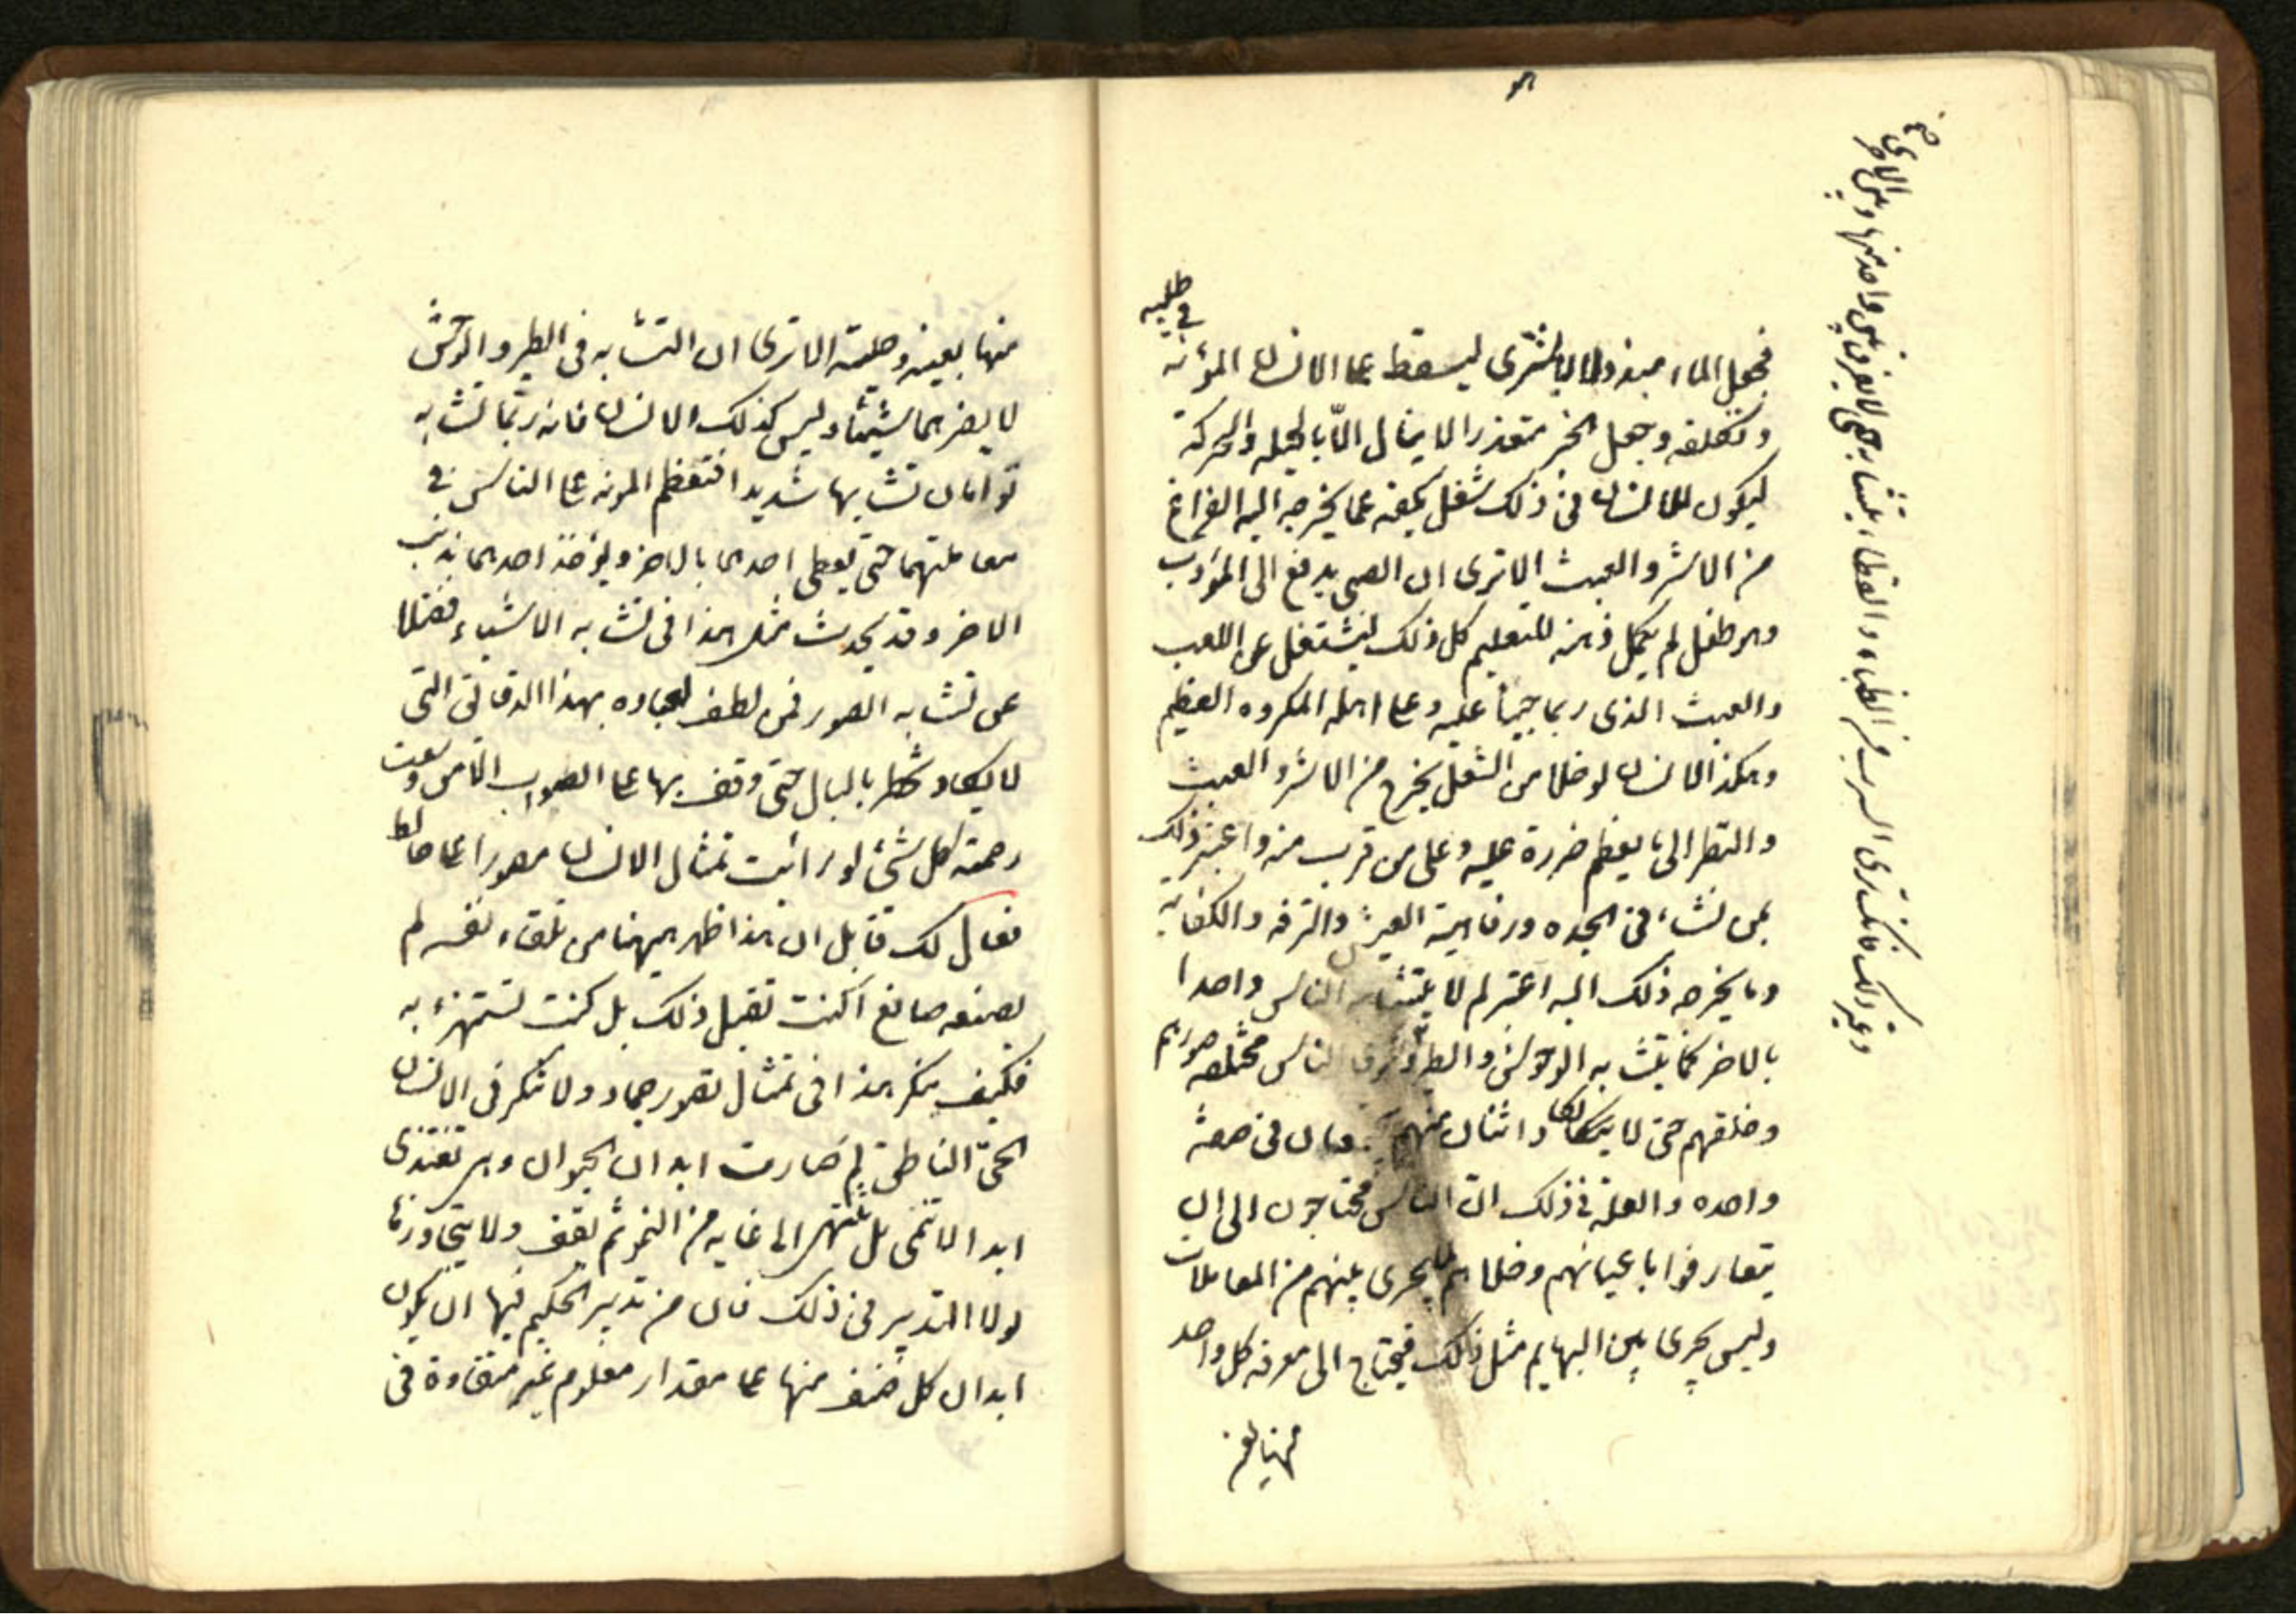 فجعل الماء مبذولا لا يشترى ليسقط عن الانسان المؤنة
في طلبه
وتكلفه وجعل الخبز متعذرا لا ينال الّا بالحيله والحركة
ليكون للانسان في ذلك شغل يكفه عما يخرجه اليه الفراغ
من الاشر والعبث الا ترى ان الصبي يدفع الى المؤدب
وهو طفل لم يكمل ذهنه للتعليم كل ذلك ليشتغل عن اللعب
والعبث الذي ربما جنيا عليه وعلى اهله المكروه العظيم
وهكذا الانسان لو خلا من الشغل يخرج من الاشر والعبث
والبطر الى ما يعظم ضرره عليه وعلى من قرب منه واعتبر ذلك
بمن نشاء في الجده ورفاهية العيش والترفه والكفاية
وما يخرجه ذلك اليه اعتبر لم لا يتشابه الناس واحدا
بالاخر كما يتشابه الوحوش والطير الناس مختلفه صورهم
وخلقهم حتى لا يكاد اثنان منهم في صفة
واحده والعلة في ذلك انّ الناس محتاجون الى ان
يتعارفوا باعيانهم وحلاهم لما يجري بينهم من المعاملات
وليس يجرى بين البهايم مثل ذلك فيحتاج الى معرفه كل واحد
منها بعينه
وغير ذلك فانك ترى السرب من الظباء والقطا يتشابه حتى لا يفرق بين واحد منها وبين الاخرى
منها بعينه وحليته الا ترى ان التشابه في الطير والوحش
لا يضرهما شيئا وليس كذلك الانسان فانه ربّما تشابه
توامان تشابها شديدا فتعظم المونه على الناس في
معاملتهما حتى يعطى احدهما بالاخر ويؤخذ احدهما بذنب
الاخر وقد يحدث مثل هذا في تشابه الاشياء فضلا
عن تشابه الصور فمن لطف لعباده بهذا الدقائق التي
لا يكاد تخطر بالبال حتى وقف بها على الصواب الّا من وسعت
رحمته كل شئ لو رائت تمثال الانسان مصورا على حائط
فقال لك قائل ان هذا ظهر ههنا من تلقاء نفسه لم
يصنعه صانع اكنت تقبل ذلك بل كنت تستهزء به
فكيف ينكر هذا في تمثال تصور جماد ولا تنكر في الانسان
الحيّ الناطق لم صارت ابدان الحيوان وهى تغتذى
ابدا لا تنمى بل تنتهى الى غايه من النمو ثم تقف ولا يتجاوزها
لولا التدبير في ذلك فان من تدبير الحكيم فيها ان يكون
ابدان كل صنف منها على مقدار معلوم غير متفاوة في